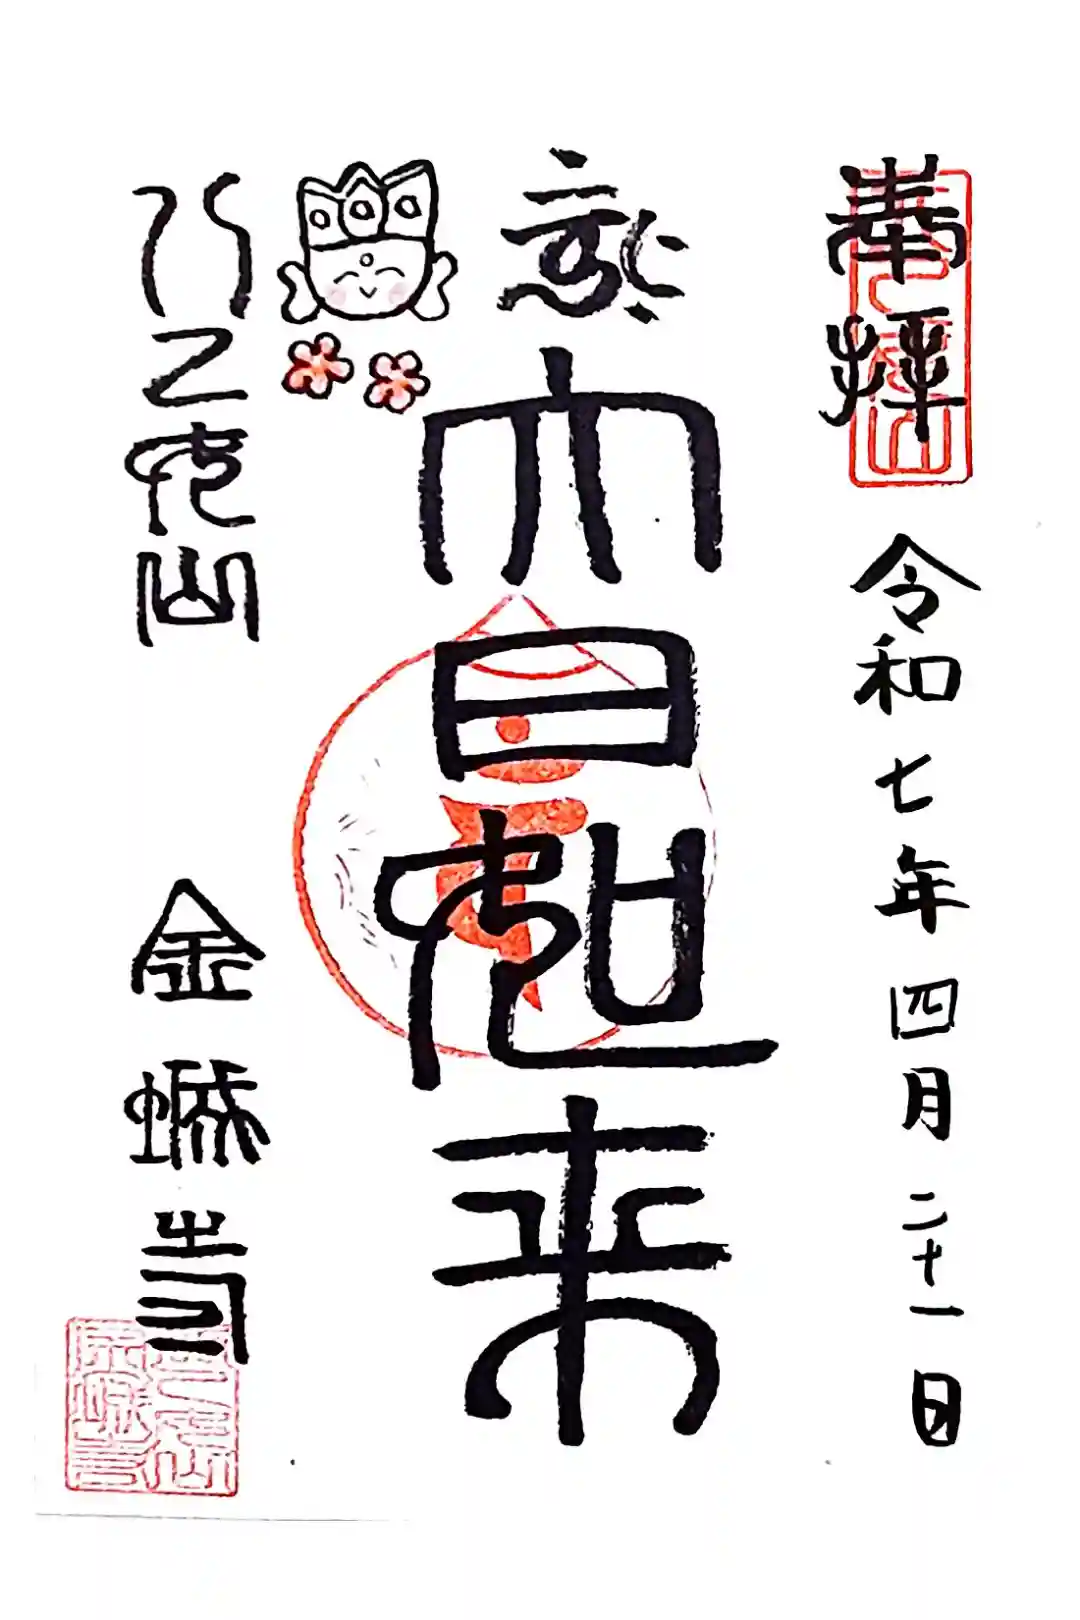 奉拝 令和七年四月二十一日
大日如来
八乙女山 金 寺